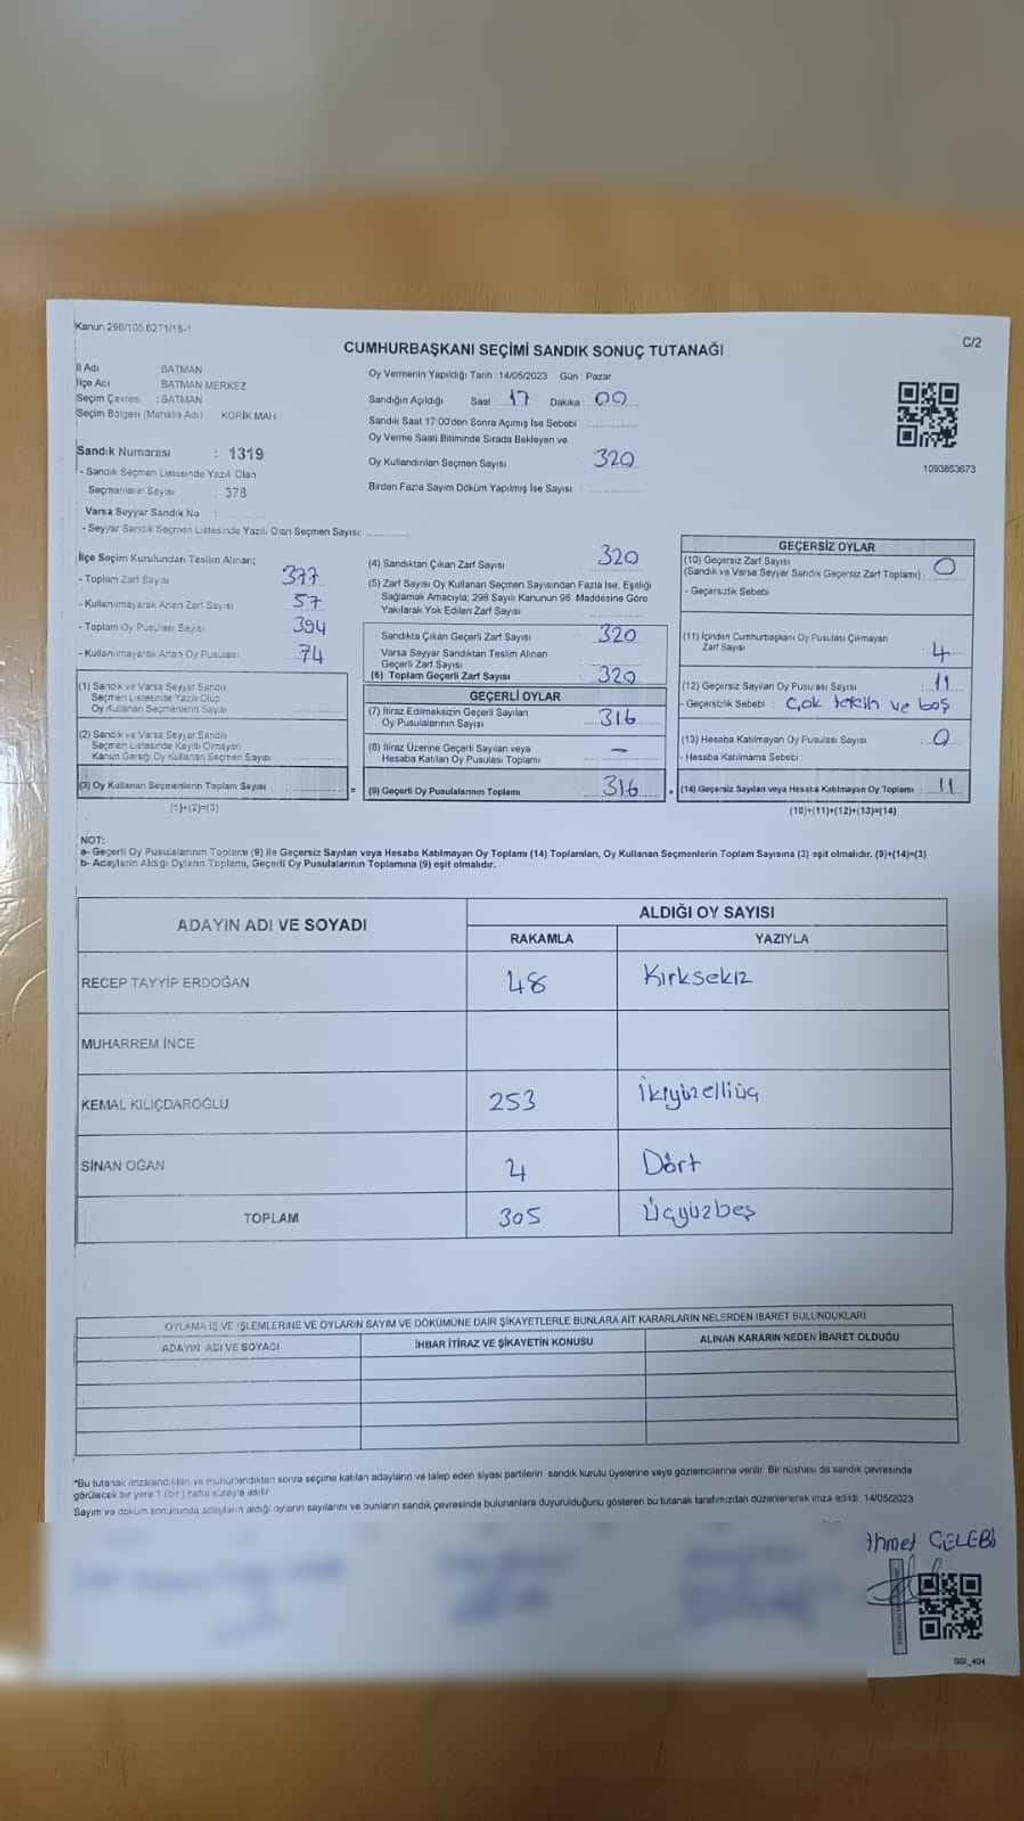 Kanun 298/105,6271/18-1
C/2
CUMHURBAŞKANI SEÇİMİ SANDIK SONUÇ TUTANAĞI
İl Adı BATMAN
İlçe Adı BATMAN MERKEZ
Seçim Çevresi : BATMAN
Seçim Bölgesi (Mahalle Adı) KORİK MAH
Sandık Numarası : 1319
- Sandık Seçmen Listesinde Yazılı Olan
Seçmenlerin Sayısı : 378
Varsa Seyyar Sandık No :
- Seyyar Sandık Seçmen Listesinde Yazılı Olan Seçmen Sayısı:
Oy Vermenin Yapıldığı Tarih : 14/05/2023 Gün : Pazar
Sandığın Açıldığı Saat 17 Dakika : 00
Sandık Saat 17:00'den Sonra Açımış İse Sebebi
Oy Verme Saati Bitiminde Sırada Bekleyen ve
Oy Kullandırılan Seçmen Sayısı 320
Birden Fazla Sayım Döküm Yapılmış İse Sayısı :
1093853673
İlçe Seçim Kurulundan Teslim Alınan;
- Toplam Zarf Sayısı 377
- Kullanılmayarak Artan Zarf Sayısı 57
- Toplam Oy Pusulası Sayısı 394
- Kullanılmayarak Artan Oy Pusulası 74
(1) Sandık ve Varsa Seyyar Sandık
Seçmen Listesinde Yazılı Olup
Oy Kullanan Seçmenlerin Sayısı
(2) Sandık ve Varsa Seyyar Sandık
Seçmen Listesinde Kayıtlı Olmayan
Kanun Gereği Oy Kullanan Seçmen Sayısı
(3) Oy Kullanan Seçmenlerin Toplam Sayısı =
(1)+(2)=(3)
(4) Sandıktan Çıkan Zarf Sayısı 320
(5) Zarf Sayısı Oy Kullanan Seçmen Sayısından Fazla İse, Eşitliği
Sağlamak Amacıyla; 298 Sayılı Kanunun 98. Maddesine Göre
Yakılarak Yok Edilen Zarf Sayısı
Sandıkta Çıkan Geçerli Zarf Sayısı 320
Varsa Seyyar Sandıktan Teslim Alınan
Geçerli Zarf Sayısı
(6) Toplam Geçerli Zarf Sayısı 320
GEÇERLİ OYLAR
(7) İtiraz Edilmeksizin Geçerli Sayılan
Oy Pusulalarının Sayısı 316
(8) İtiraz Üzerine Geçerli Sayılan veya
Hesaba Katılan Oy Pusulası Toplamı –
(9) Geçerli Oy Pusulalarının Toplamı 316
GEÇERSİZ OYLAR
(10) Geçersiz Zarf Sayısı 0
(Sandık ve Varsa Seyyar Sandık Geçersiz Zarf Toplamı)
- Geçersizlik Sebebi
(11) İçinden Cumhurbaşkanı Oy Pusulası Çıkmayan
Zarf Sayısı 4
(12) Geçersiz Sayılan Oy Pusulası Sayısı : 11
- Geçersizlik Sebebi : Çok tekcih ve boş
(13) Hesaba Katılmayan Oy Pusulası Sayısı : 0
- Hesaba Katılmama Sebebi :
(14) Geçersiz Sayılan veya Hesaba Katılmayan Oy Toplamı 11
(10)+(11)+(12)+(13)=(14)
NOT:
a- Geçerli Oy Pusulalarının Toplamı (9) ile Geçersiz Sayılan veya Hesaba Katılmayan Oy Toplamı (14) Toplamları, Oy Kullanan Seçmenlerin Toplam Sayısına (3) eşit olmalıdır. (9)+(14)=(3)
b- Adayların Aldığı Oyların Toplamı, Geçerli Oy Pusulalarının Toplamına (9) eşit olmalıdır.
ADAYIN ADI VE SOYADI
ALDIĞI OY SAYISI
RAKAMLA YAZIYLA
RECEP TAYYİP ERDOĞAN 48 Kırksekiz
MUHARREM İNCE
KEMAL KILIÇDAROĞLU 253 İkiyüzelliüç
SİNAN OĞAN 4 Dört
TOPLAM 305 Üçyüzbeş
OYLAMA İŞ VE İŞLEMLERİNE VE OYLARIN SAYIM VE DÖKÜMÜNE DAİR ŞİKAYETLERLE BUNLARA AİT KARARLARIN NELERDEN İBARET BULUNDUKLARI
ADAYIN ADI VE SOYADI İHBAR İTİRAZ VE ŞİKAYETİN KONUSU ALINAN KARARIN NEDEN İBARET OLDUĞU
*Bu tutanak imzalandıktan ve mühürlendikten sonra seçime katılan adayların ve talep eden siyasi partilerin sandık kurulu üyelerine veya gözlemcilerine verilir. Bir nüshası da sandık çevresinde
görülecek bir yere 1 (bir) hafta süreyle asılır.
Sayım ve döküm sonucunda adayların aldığı oyların sayılarını ve bunların sandık çevresinde bulunanlara duyurulduğunu gösteren bu tutanak tarafımızdan düzenlenerek imza edildi. 14/05/2023
Ahmet ÇELEBİ